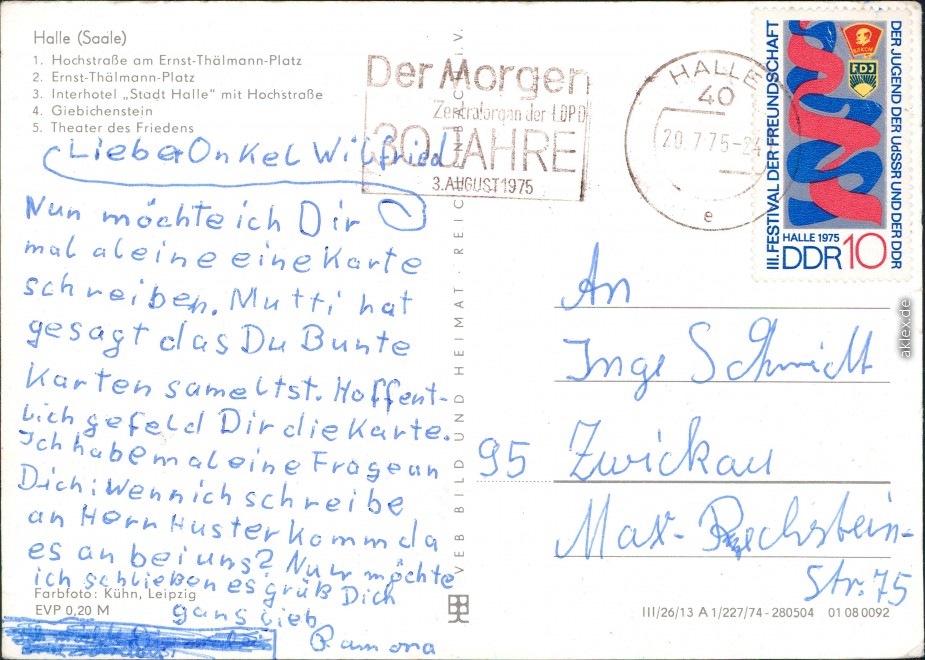 Halle (Saale)
1. Hochstraße am Ernst-Thälmann-Platz
2. Ernst-Thälmann-Platz
3. Interhotel „Stadt Halle" mit Hochstraße
4. Giebichenstein
5. Theater des Friedens
Lieber Onkel Wilfried
Nun möchte ich Dir
mal aleine eine Karte
schreiben. Mutti hat
gesagt das Du Bunte
Karten sameltst. Hoffent-
lich gefeld Dir die Karte.
Ich habe mal eine Frage an
Dich: Wenn ich schreibe
an Herrn Huster komm da
es an bei uns? Nun möchte
ich schließen es grüß Dich
gans lieb
Ramona
Farbfoto: Kühn, Leipzig
EVP 0,20 M
VEB BILD UND HEIMAT · REICHENBACH i. V.
Der Morgen
Zentralorgan der LDPD
30 JAHRE
3. AUGUST 1975
HALLE
40
20.7.75-24
e
III. FESTIVAL DER FREUNDSCHAFT
DER JUGEND DER UdSSR UND DER DDR
FDJ
HALLE 1975
DDR 10
An
Inge Schmidt
95 Zwickau
Max-Pechstein-
Str. 75
III/26/13 A 1/227/74-280504 01 08 0092
aklex.de